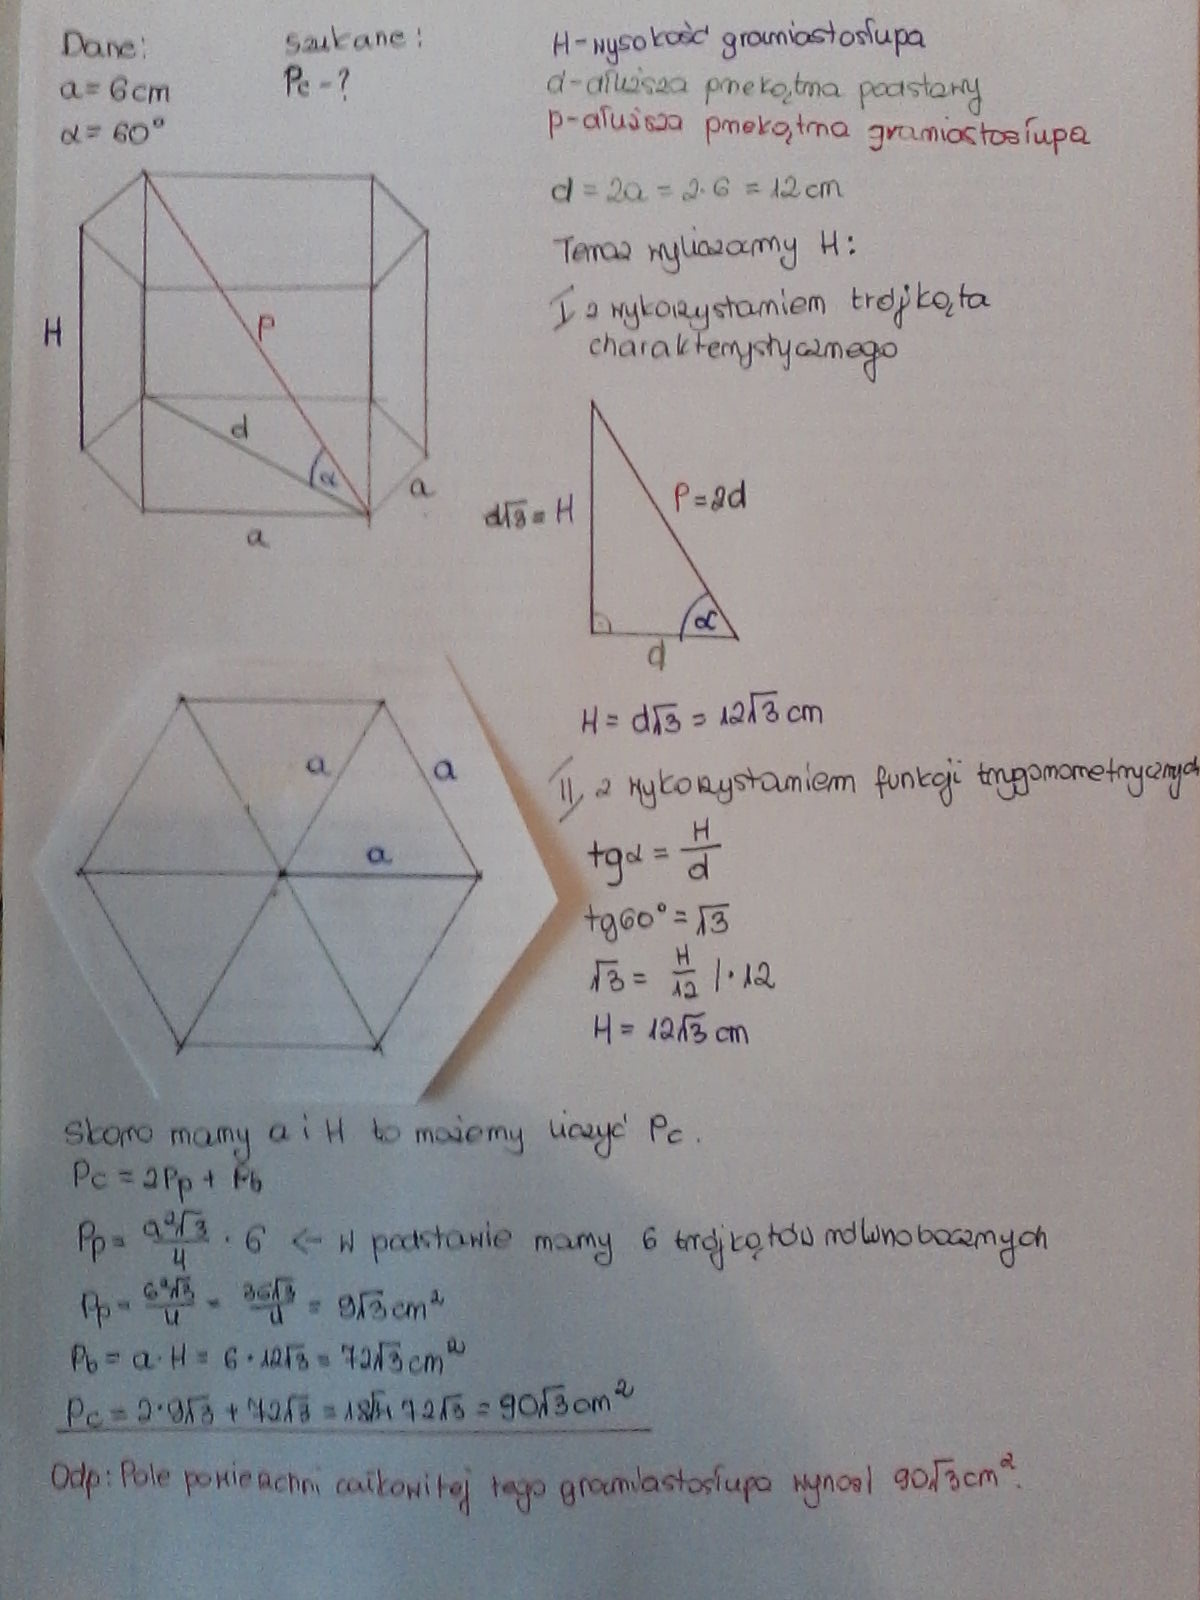 Dane:
a = 6cm
α = 60°
szukane:
Pc - ?
H - wysokość graniastosłupa
d - dłuższa przekątna podstawy
p - dłuższa przekątna graniastosłupa
d = 2a = 2·6 = 12cm
Teraz wyliczamy H:
I z wykorzystaniem trójkąta
charakterystycznego
H
P
d
α
a
a
d√3 = H
P = 2d
α
d
H = d√3 = 12√3 cm
II z wykorzystaniem funkcji trygonometrycznych
tgα = H/d
tg60° = √3
√3 = H/12 /·12
H = 12√3 cm
a
a
a
Skoro mamy a i H to możemy liczyć Pc.
Pc = 2Pp + Pb
Pp = a²√3/4 · 6 <- w podstawie mamy 6 trójkątów równobocznych
Pp = 6²√3/4 = 36√3/4 = 9√3 cm²
Pb = a·H = 6·12√3 = 72√3 cm²
Pc = 2·9√3 + 72√3 = 18√3+72√3 = 90√3cm²
Odp: Pole powierzchni całkowitej tego graniastosłupa wynosi 90√3cm².